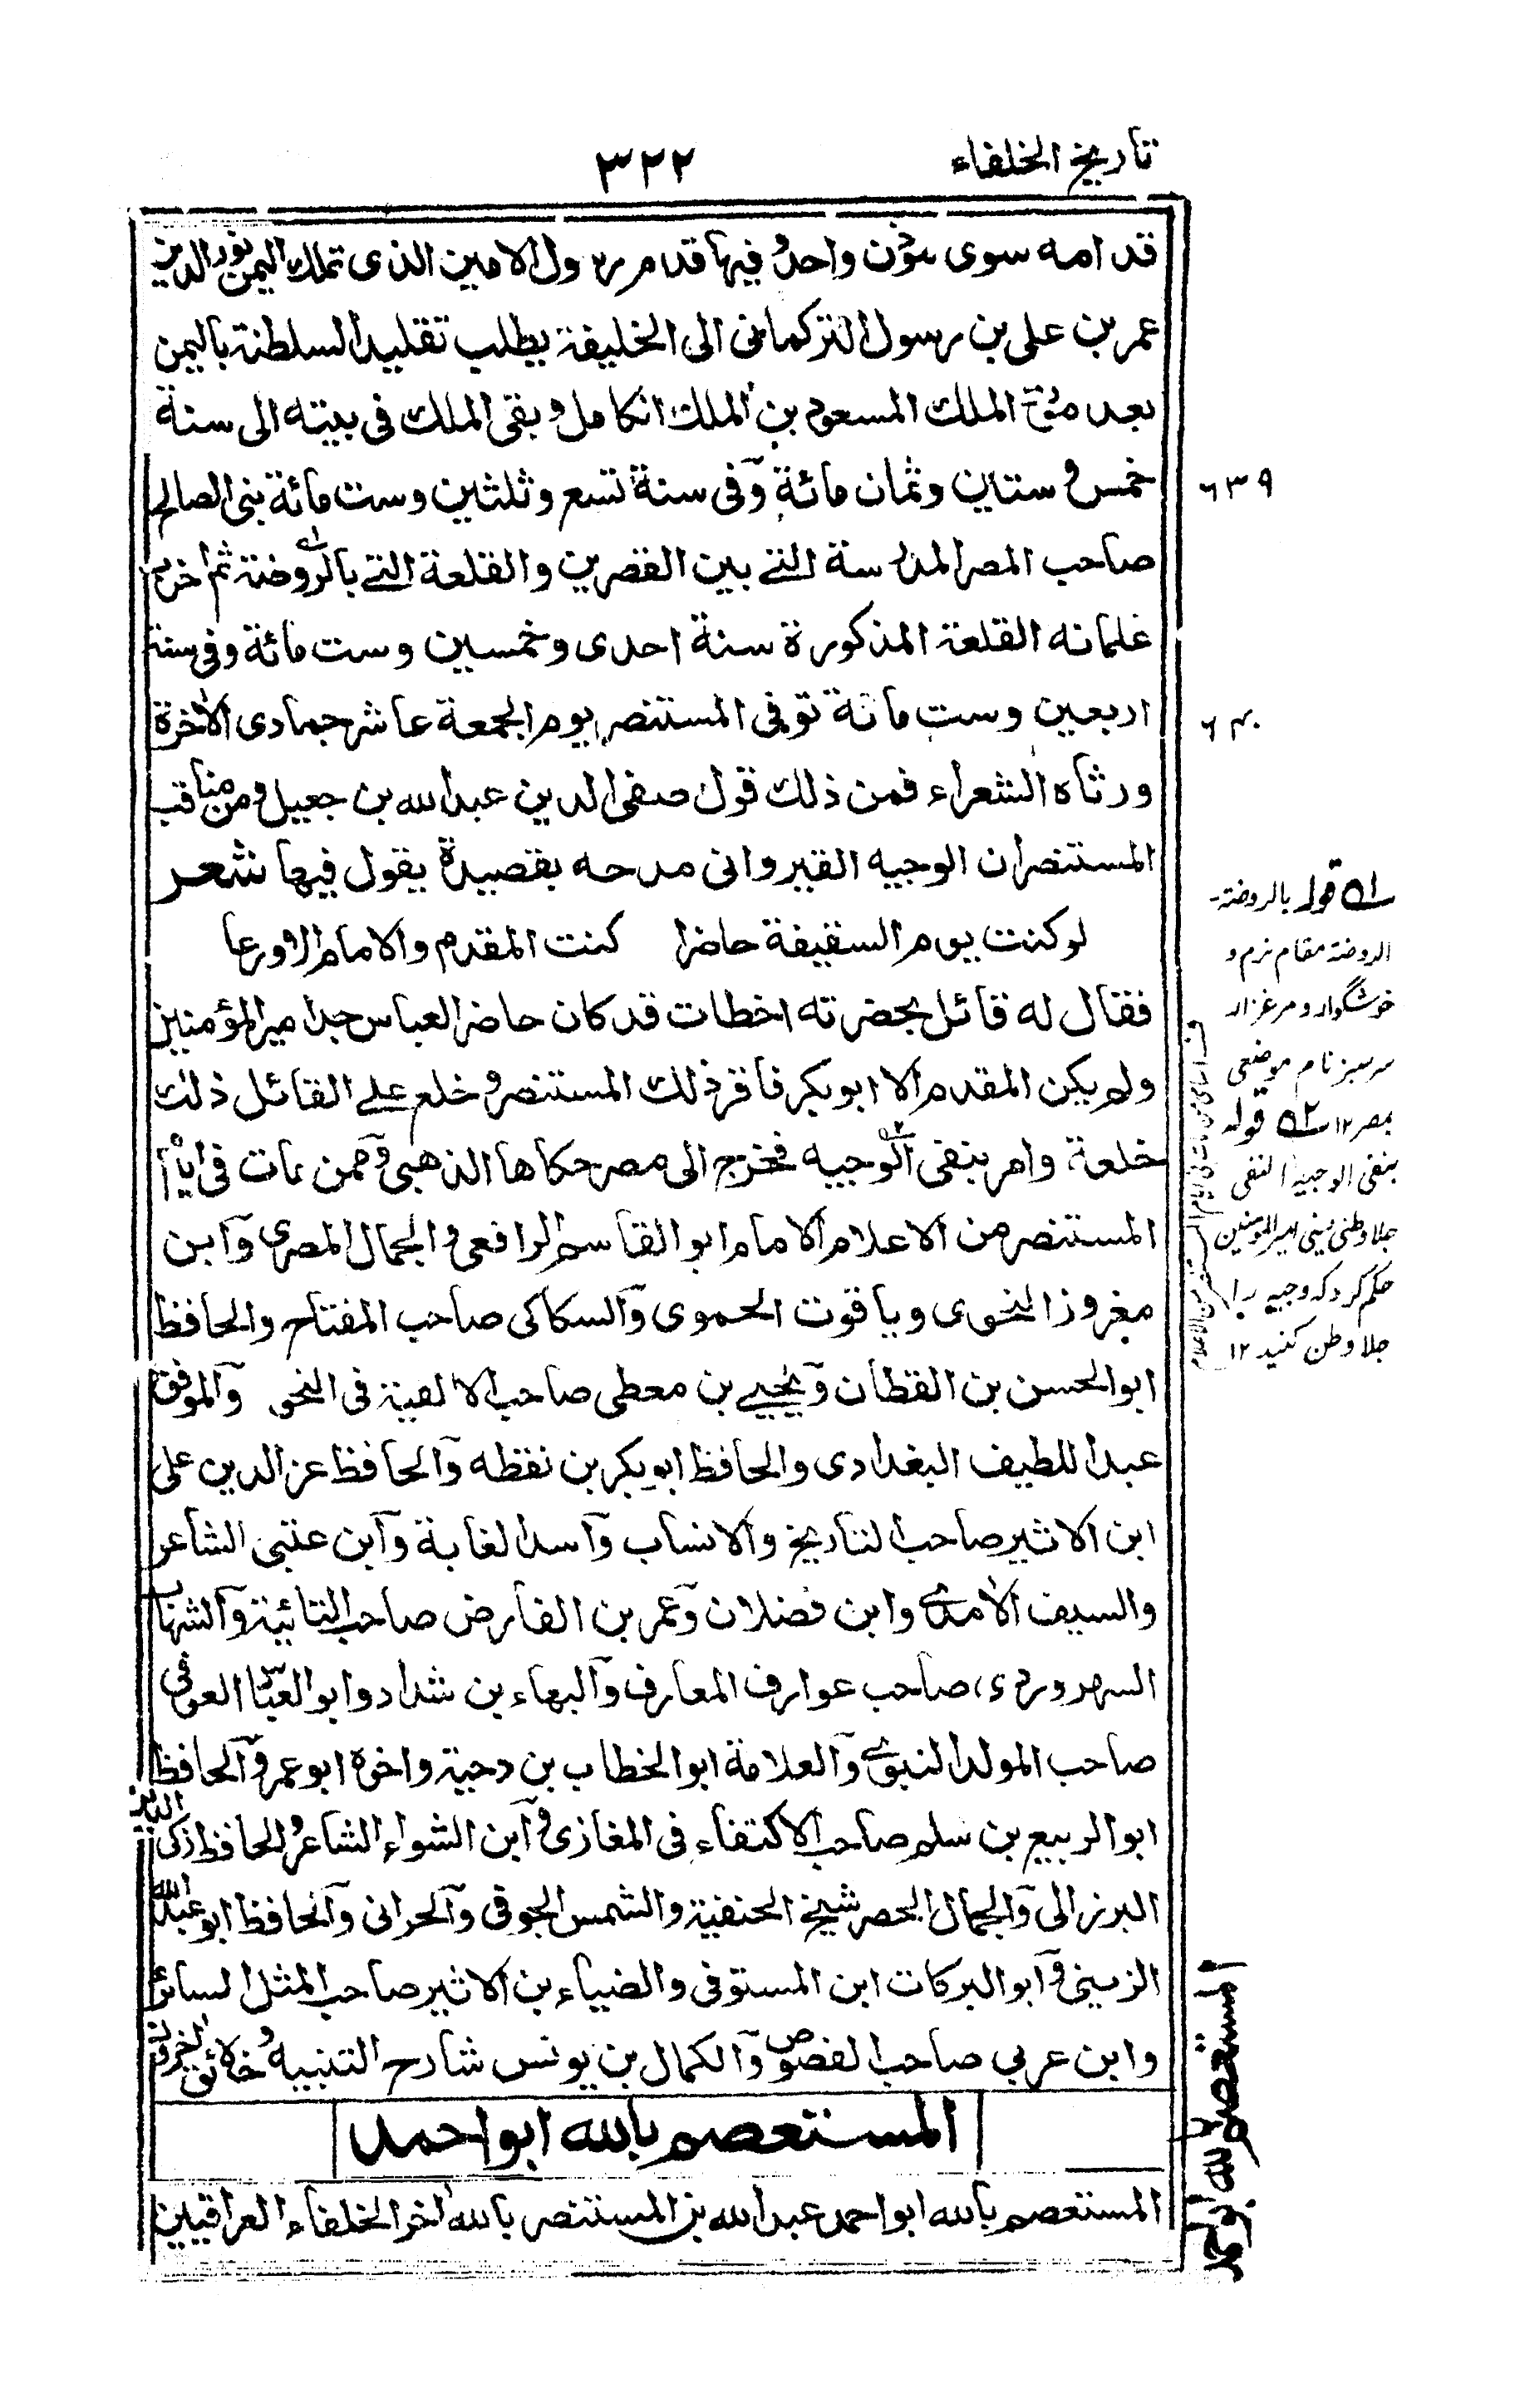 تاريخ الخلفاء
٣٢٢
قدامه سوى واحد وفيها قدم رسول الامين الذى تملك اليمن نور الدين
عمر بن على بن رسول التركمانى الى الخليفة يطلب تقليد السلطنة باليمن
بعد موت الملك المسعود بن الملك الكامل وبقى الملك فى بيته الى سنة
خمس وستين وثمان مائة وفى سنة تسع وثلثين وست مائة بنى الصالح
صاحب المصر المدرسة التے بين القصرين والقلعة التے بالروضة ثم اخرب
غلمانه القلعة المذكورة سنة احدى وخمسين وست مائة وفى سنة
اربعين وست مائة توفى المستنصر يوم الجمعة عاشر جمادى الاخرة
ورثاه الشعراء فمن ذلك قول صفى الدين عبد الله بن جعيل ومن مناقب
المستنصر ان الوجيه القيروانى مدحه بقصيدة يقول فيها شعر
لو كنت يوم السقيفة حاضرا كنت المقدم والامام الاورعا
فقال له قائل بحضرته اخطات قد كان حاضر العباس جد امير المؤمنين
ولم يكن المقدم الا ابو بكر فاقر ذلك المستنصر وخلع علے القائل ذلك
خلعة وامر بنفى الوجيه فخرج الى مصر حكاها الذهبى وممن مات فى ايام
المستنصر من الاعلام الامام ابو القاسم الرافعى والجمال المصرى وابن
مغروز النحوى وياقوت الحموى والسكاكى صاحب المفتاح والحافظ
ابو الحسن بن القطان ويحيے بن معطى صاحب الالفية فى النحو والموفق
عبد اللطيف البغدادى والحافظ ابو بكر بن نقطه والحافظ عز الدين على
ابن الاثير صاحب التاريخ والانساب واسد الغابة وابن عنتبى الشاعر
والسيف الآمدے وابن فضلان وعمر بن الفارض صاحب التائية والشهاب
السهروردى صاحب عوارف المعارف والبهاء بن شداد وابو العباس العوفى
صاحب المولد النبوے والعلامة ابو الخطاب بن دحية واخوه ابو عمرو والحافظ
ابو الربيع بن سلم صاحب الاكتفاء فى المغازى وابن الشواء الشاعر والحافظ زكى الدين
البرزالى والجمال الحصر شيخ الحنفية والشمس الجوفى والحرانى والحافظ ابو عبد الله
الزينى وابو البركات ابن المستوفى والضياء بن الاثير صاحب المثل السائر
وابن عربي صاحب الفصوص والكمال بن يونس شارح التنبيه وخلائق اخرون
المستعصم بالله ابو احمد
المستعصم بالله ابو احمد عبد الله بن المستنصر بالله اخر الخلفاء العراقيين
٦٣٩
٦٤٠
لـه قوله بالروضة-
الروضة مقام نرم و
خوشگوار و مرغزار
سرسبز نام موضعى
بمصر ١٢ ٢ـه قوله
بنفى الوجيه النفى
جلا وطنى يعنى امير المؤمنين
حكم كرد كه وجيه را
جلا وطن كنيد ١٢
المستعصم بالله ابو احمد